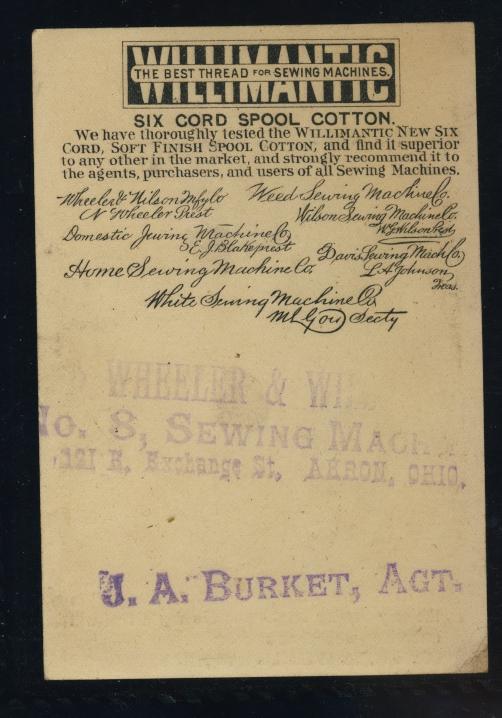 WILLIMANTIC
THE BEST THREAD FOR SEWING MACHINES.
SIX CORD SPOOL COTTON.
We have thoroughly tested the WILLIMANTIC NEW SIX
CORD, SOFT FINISH SPOOL COTTON, and find it superior
to any other in the market, and strongly recommend it to
the agents, purchasers, and users of all Sewing Machines.
Wheeler & Wilson Mfg Co
N Wheeler Prest
Weed Sewing Machine Co.
Wilson Sewing Machine Co.
W.G. Wilson Prest
Domestic Sewing Machine Co
E. J. Blake prest
Davis Sewing Mach Co,
L. A. Johnson
Treas.
Home Sewing Machine Co.
White Sewing Machine Co.
Secty
WHEELER & WIL
No. 8, SEWING MACH
121 E. Exchange St, AKRON, OHIO,
J. A. BURKET, AGT.